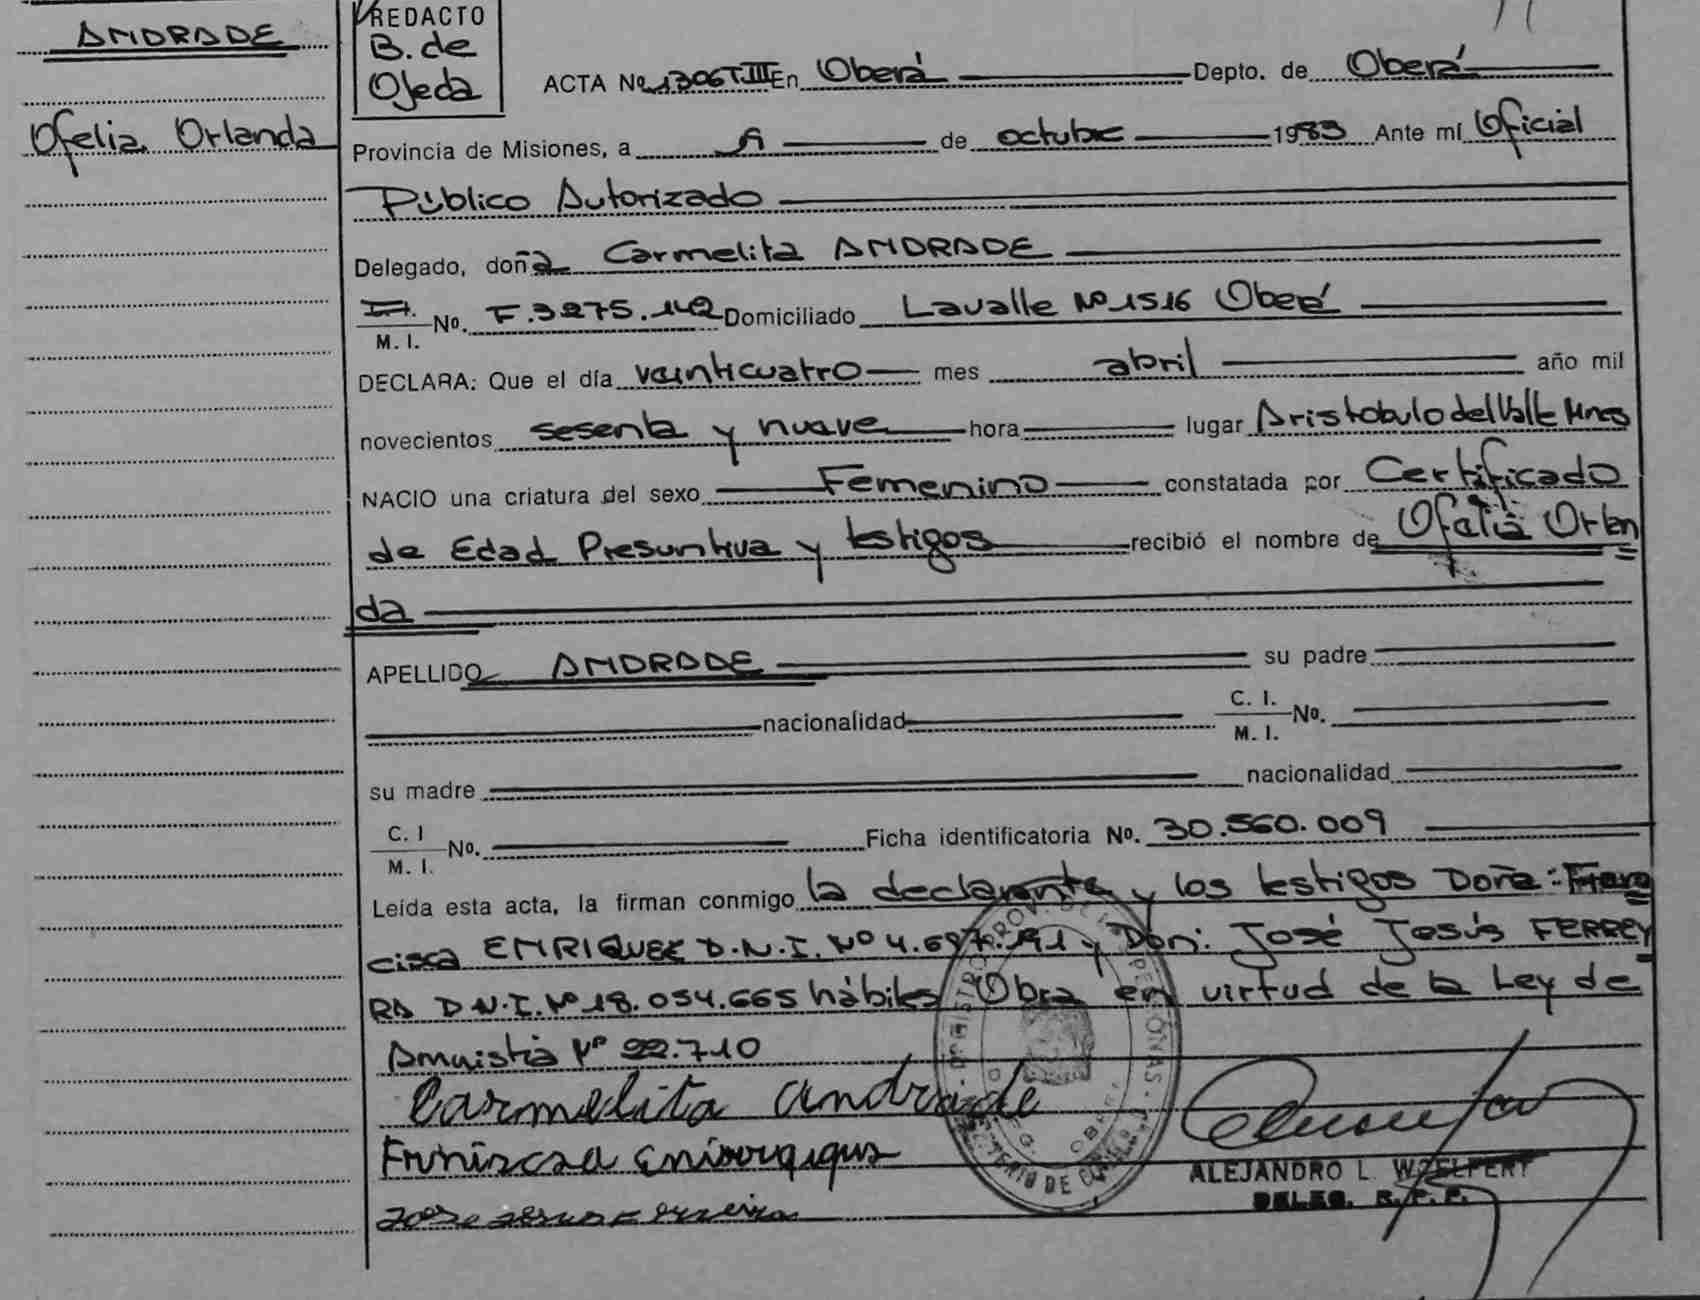 ANDRADE
Ofelia Orlanda
REDACTO
B. de
Ojeda
ACTA No 1306 T.III En Oberá Depto. de Oberá
Provincia de Misiones, a de octubre 1983 Ante mí Oficial
Público Autorizado
Delegado, doña Carmelita ANDRADE
M. I. No. F.3275.142 Domiciliado Lavalle Nº 1516 Oberá
DECLARA: Que el día veinticuatro mes abril año mil
novecientos sesenta y nueve hora lugar Aristobulo del Valle Mnes
NACIO una criatura del sexo Femenino constatada por Certificado
de Edad Presuntiva y testigos recibió el nombre de Ofelia Orlan
da
APELLIDO ANDRADE su padre
nacionalidad C. I. M. I. No.
su madre nacionalidad
C. I M. I. No. Ficha identificatoria No. 30.560.009
Leída esta acta, la firman conmigo la declarante y los testigos Doña: Fran
cisca ENRIQUEZ D.N.I. Nº y Don: José Jesús FERREY
RA D.N.I. Nº 18.054.665 hábiles Obra en virtud de la Ley de
Amnistía Nº 22.710
Carmelita andrade
ALEJANDRO L. WOELFERT
DELEG. R. P. P.